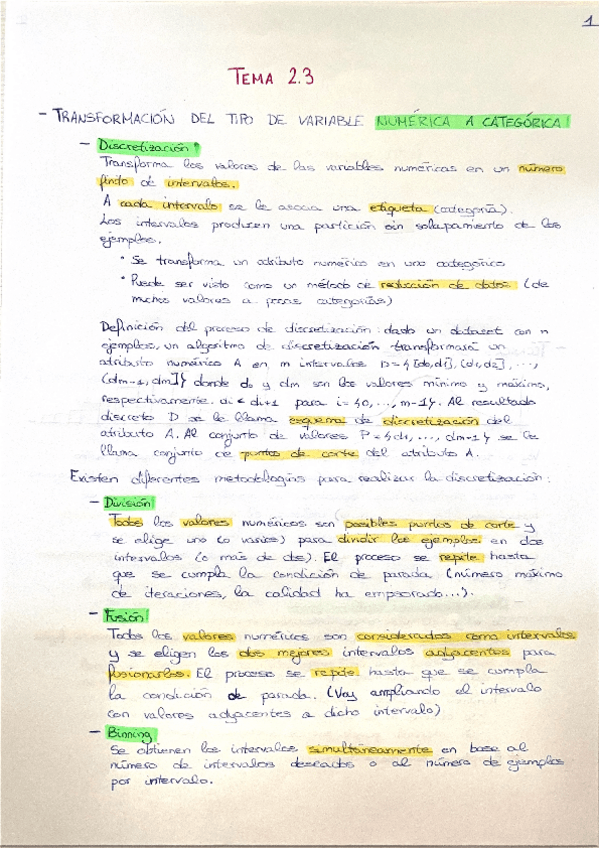 1
TEMA 2.3
- TRANSFORMACIÓN DEL TIPO DE VARIABLE NUMÉRICA A CATEGÓRICA
- Discretización
Transforma los valores de las variables numéricas en un número
finito de intervalos.
A cada intervalo se le asocia una etiqueta (categoría).
Los intervalos producen una partición sin solapamiento de los
ejemplos.
* Se transforma un atributo numérico en uno categórico
* Puede ser visto como un método de reducción de datos (de
muchos valores a pocas categorías)
Definición del proceso de discretización: dado un dataset con n
ejemplos, un algoritmo de discretización transformará un
atributo numérico A en m intervalos D={[d0,d1], (d1,d2], ...,
(dm-1, dm]} donde d0 y dm son los valores mínimo y máximo,
respectivamente. di < di+1 para i={0,..., m-1}. Al resultado
discreto D se le llama esquema de discretización del
atributo A. Al conjunto de valores P={d1, ..., dm-1} se le
llama conjunto de puntos de corte del atributo A.
Existen diferentes metodologías para realizar la discretización:
- División
Todos los valores numéricos son posibles puntos de corte y
se elige uno (o varios) para dividir los ejemplos en dos
intervalos (o más de dos). El proceso se repite hasta
que se cumpla la condición de parada (número máximo
de iteraciones, la calidad ha empeorado...).
- Fusión
Todos los valores numéricos son considerados como intervalos
y se eligen los dos mejores intervalos adyacentes para
fusionarlos. El proceso se repite hasta que se cumpla
la condición de parada. (Voy ampliando el intervalo
con valores adyacentes a dicho intervalo)
- Binning
Se obtienen los intervalos simultáneamente en base al
número de intervalos deseados o al número de ejemplos
por intervalo.